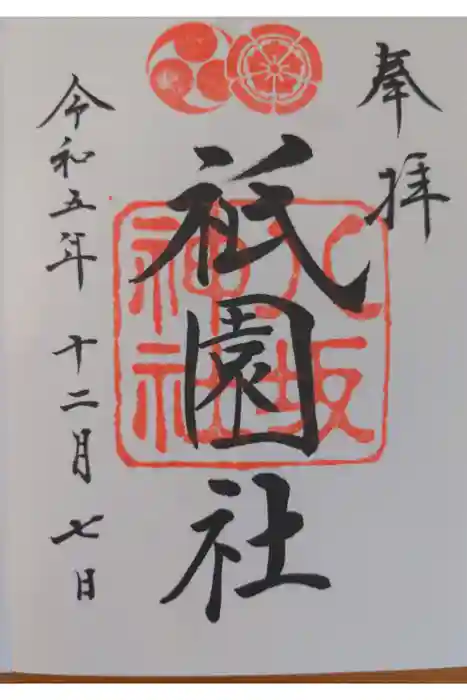 奉拝
祇園社
八坂
神社
令和五年 十二月 七日